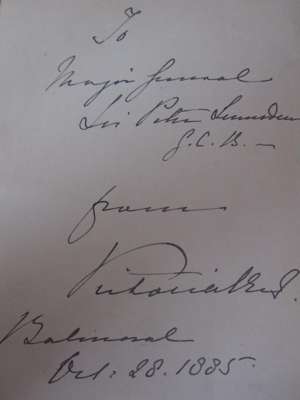 To
Major General
Sir Peter Lumsden
G.C.B. —
from
Victoria R&I.
Balmoral
Oct: 28. 1885.